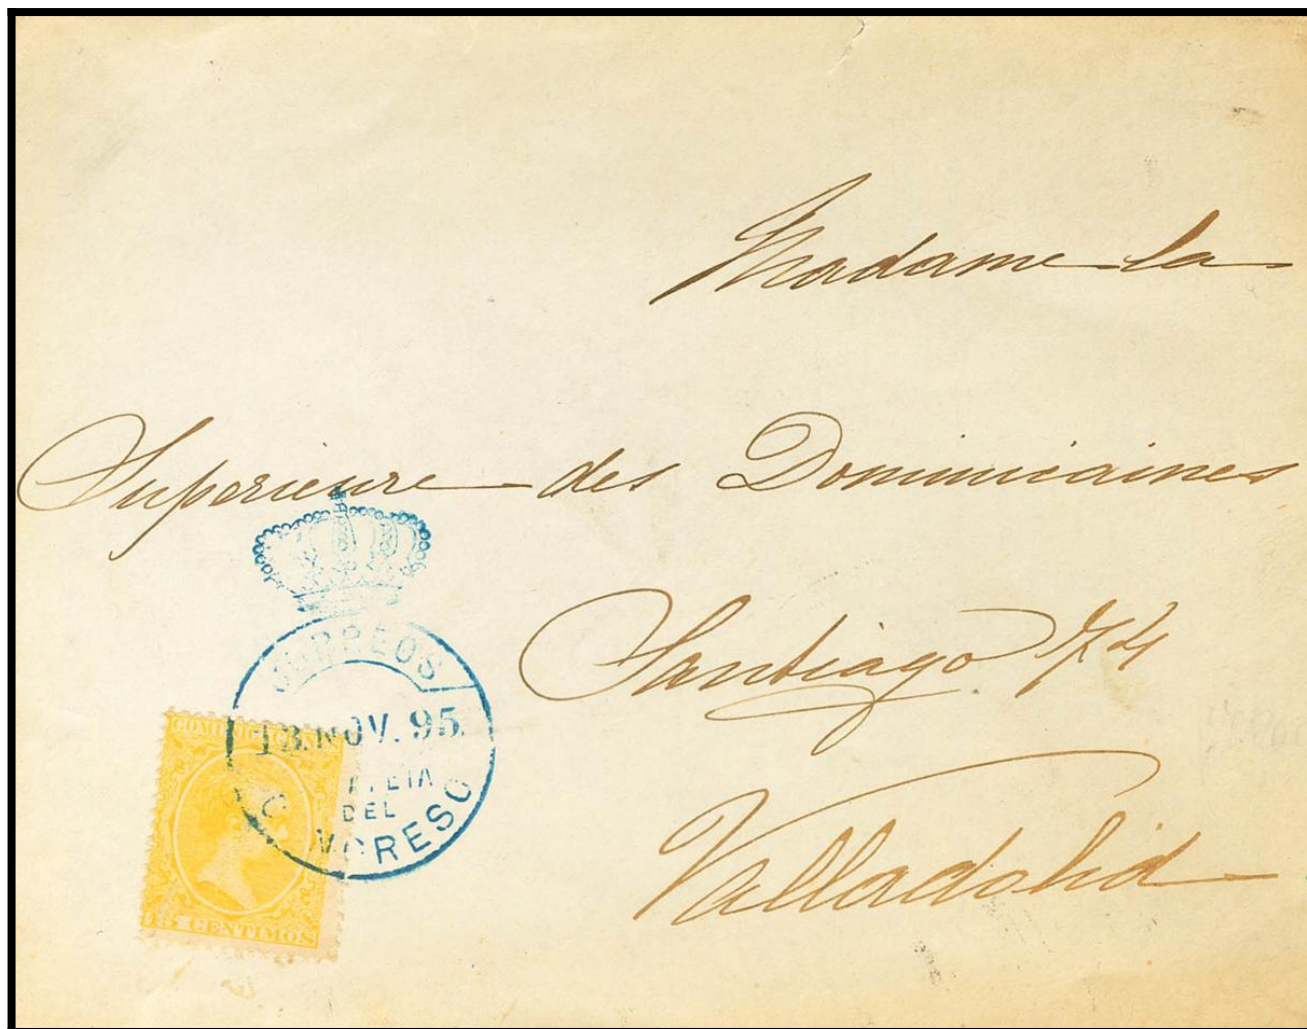 Madame la
Superieure des Dominicaines
Santiago 74
Valladolid
CORREOS
13.NOV.95.
DEL
COMUNICACIONES
15 CENTIMOS